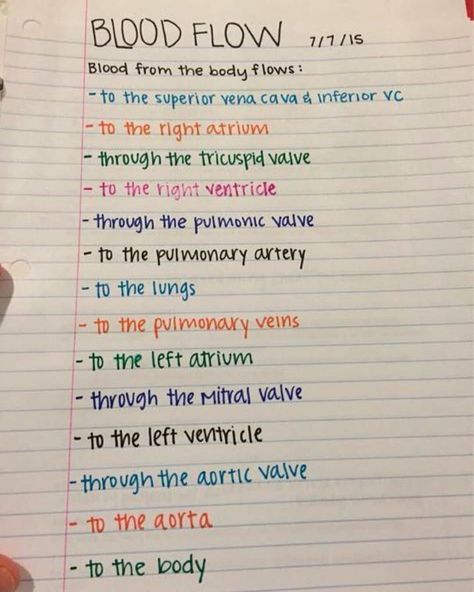 BLOOD FLOW 7/7/15
Blood from the body flows:
- to the superior vena cava & inferior VC
- to the right atrium
- through the tricuspid valve
- to the right ventricle
- through the pulmonic valve
- to the pulmonary artery
- to the lungs
- to the pulmonary veins
- to the left atrium
- through the Mitral valve
- to the left ventricle
- through the aortic valve
- to the aorta
- to the body